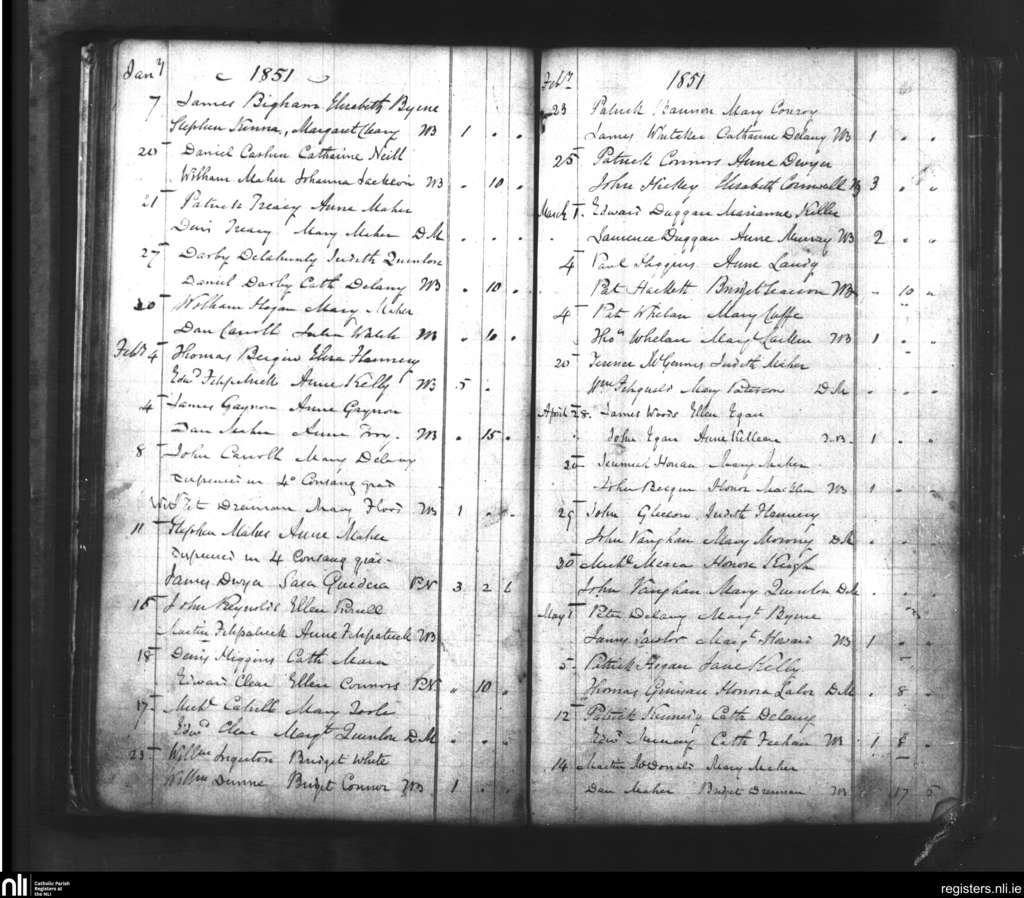 Jany 1851
7 James Bigham Elizabeth Byrne
Stephen Kenna, Margaret Cleary WB 1 . .
20 Daniel Cashen Catharine Neill
William Maher Johanna Jackson WB . 10 .
21 Patrick Treacy Anne Maher
Denis Treacy Mary Maher DM . . .
27 Darby Delahunty Judith Quinlan
Daniel Darby Cath Delany WB . 10 .
William Hogan Mary Maher
Dan Carroll Walsh WB . 10 .
Feby 4 Thomas Bergin Eliza Flannery
Edwd Fitzpatrick Anne Kelly WB 5 .
4 James Gaynor Anne Gaynor
Dan Maher Anne Troy. WB . 15 .
8 John Carroll Mary Delany
dispensed in 4o Consang grad
Wit Pat Drennan Mary Flood WB 1 . .
11 Stephen Maher Anne Maher
dispensed in 4 Consang grad.
James Dwyer Sara Guidera PN 3 2 6
15 John Reynolds Ellen
Martin Fitzpatrick Anne Fitzpatrick WB
18 Denis Higgins Cath Mara
Edward Clear Ellen Connors PN " 10 "
17 Michl Cahill Mary Toole
Edwd Clear Margt Quinlan DM . . .
23 Willm Bridget White
Willm Dunne Bridget Connor WB 1 . .
Feby 1851
23 Patrick Bannon Mary Conroy
James Whitaker Catharine Delany WB 1 . .
25 Patrick Connors Anne Dwyer
John Hickey Elizabeth Cornwell WB 3 . .
March 1. Edward Duggan Marianne
Laurence Duggan Anne Murray WB 2 . .
4 Paul Higgins Anne Landy
Pat Hackett Bridget WB . 10 "
4 Pat Whelan Mary Cuffe
Thos Whelan Margt Larkin WB 1 . .
20 Terence McGennis Judith Maher
Wm Fitzgerald Mary Paterson DM . . .
April 28. James Woods Ellen Egan
John Egan Anne Killeen WB 1 . .
Jeremiah Honan Mary Maher
John Bergin Honor WB 1 . .
29 John Gleeson Judith Flannery
John Vaughan Mary Moroney DM . . .
30 Michl Meara Honora Keogh
John Vaughan Mary Quinlan DM . . .
May 1 Peter Delany Margt Byrne
James Lawlor Margt Howard WB 1 . .
5 Patrick Hogan Jane Kelly
Thomas Honora Lalor DM . 8 .
12 Patrick Kennedy Cath Delany
Edwd Cath Feehan WB 1 8 .
14 Martin McDonald Mary Maher
Dan Maher Bridget Drennan WB 17 5
nli
Catholic Parish
Registers at
the NLI
registers.nli.ie